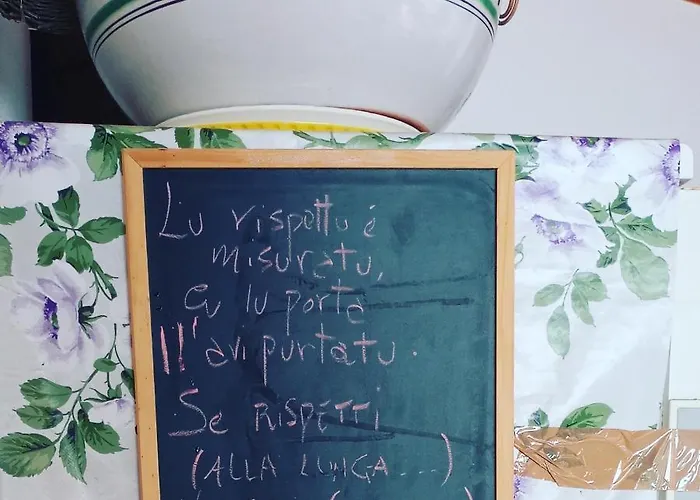 Lu rispettu é
misuratu,
cu lu porta
ll'avi purtatu.
SE RISPETTI
(ALLA LUNGA...)